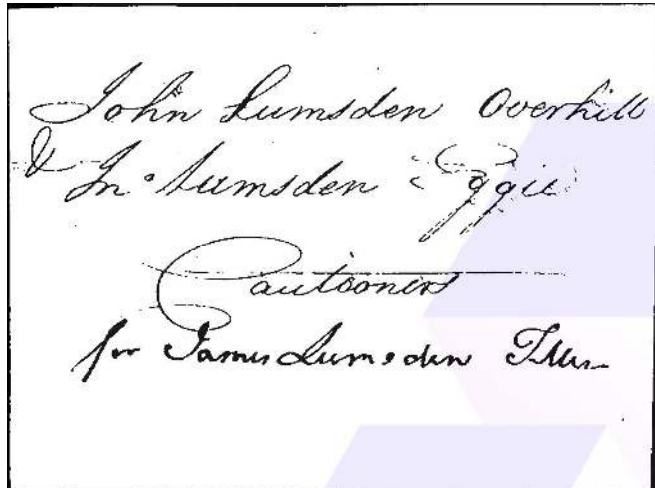 John Lumsden Overhill
& Jn° Lumsden Eggie
Cautioners
for James Lumsden